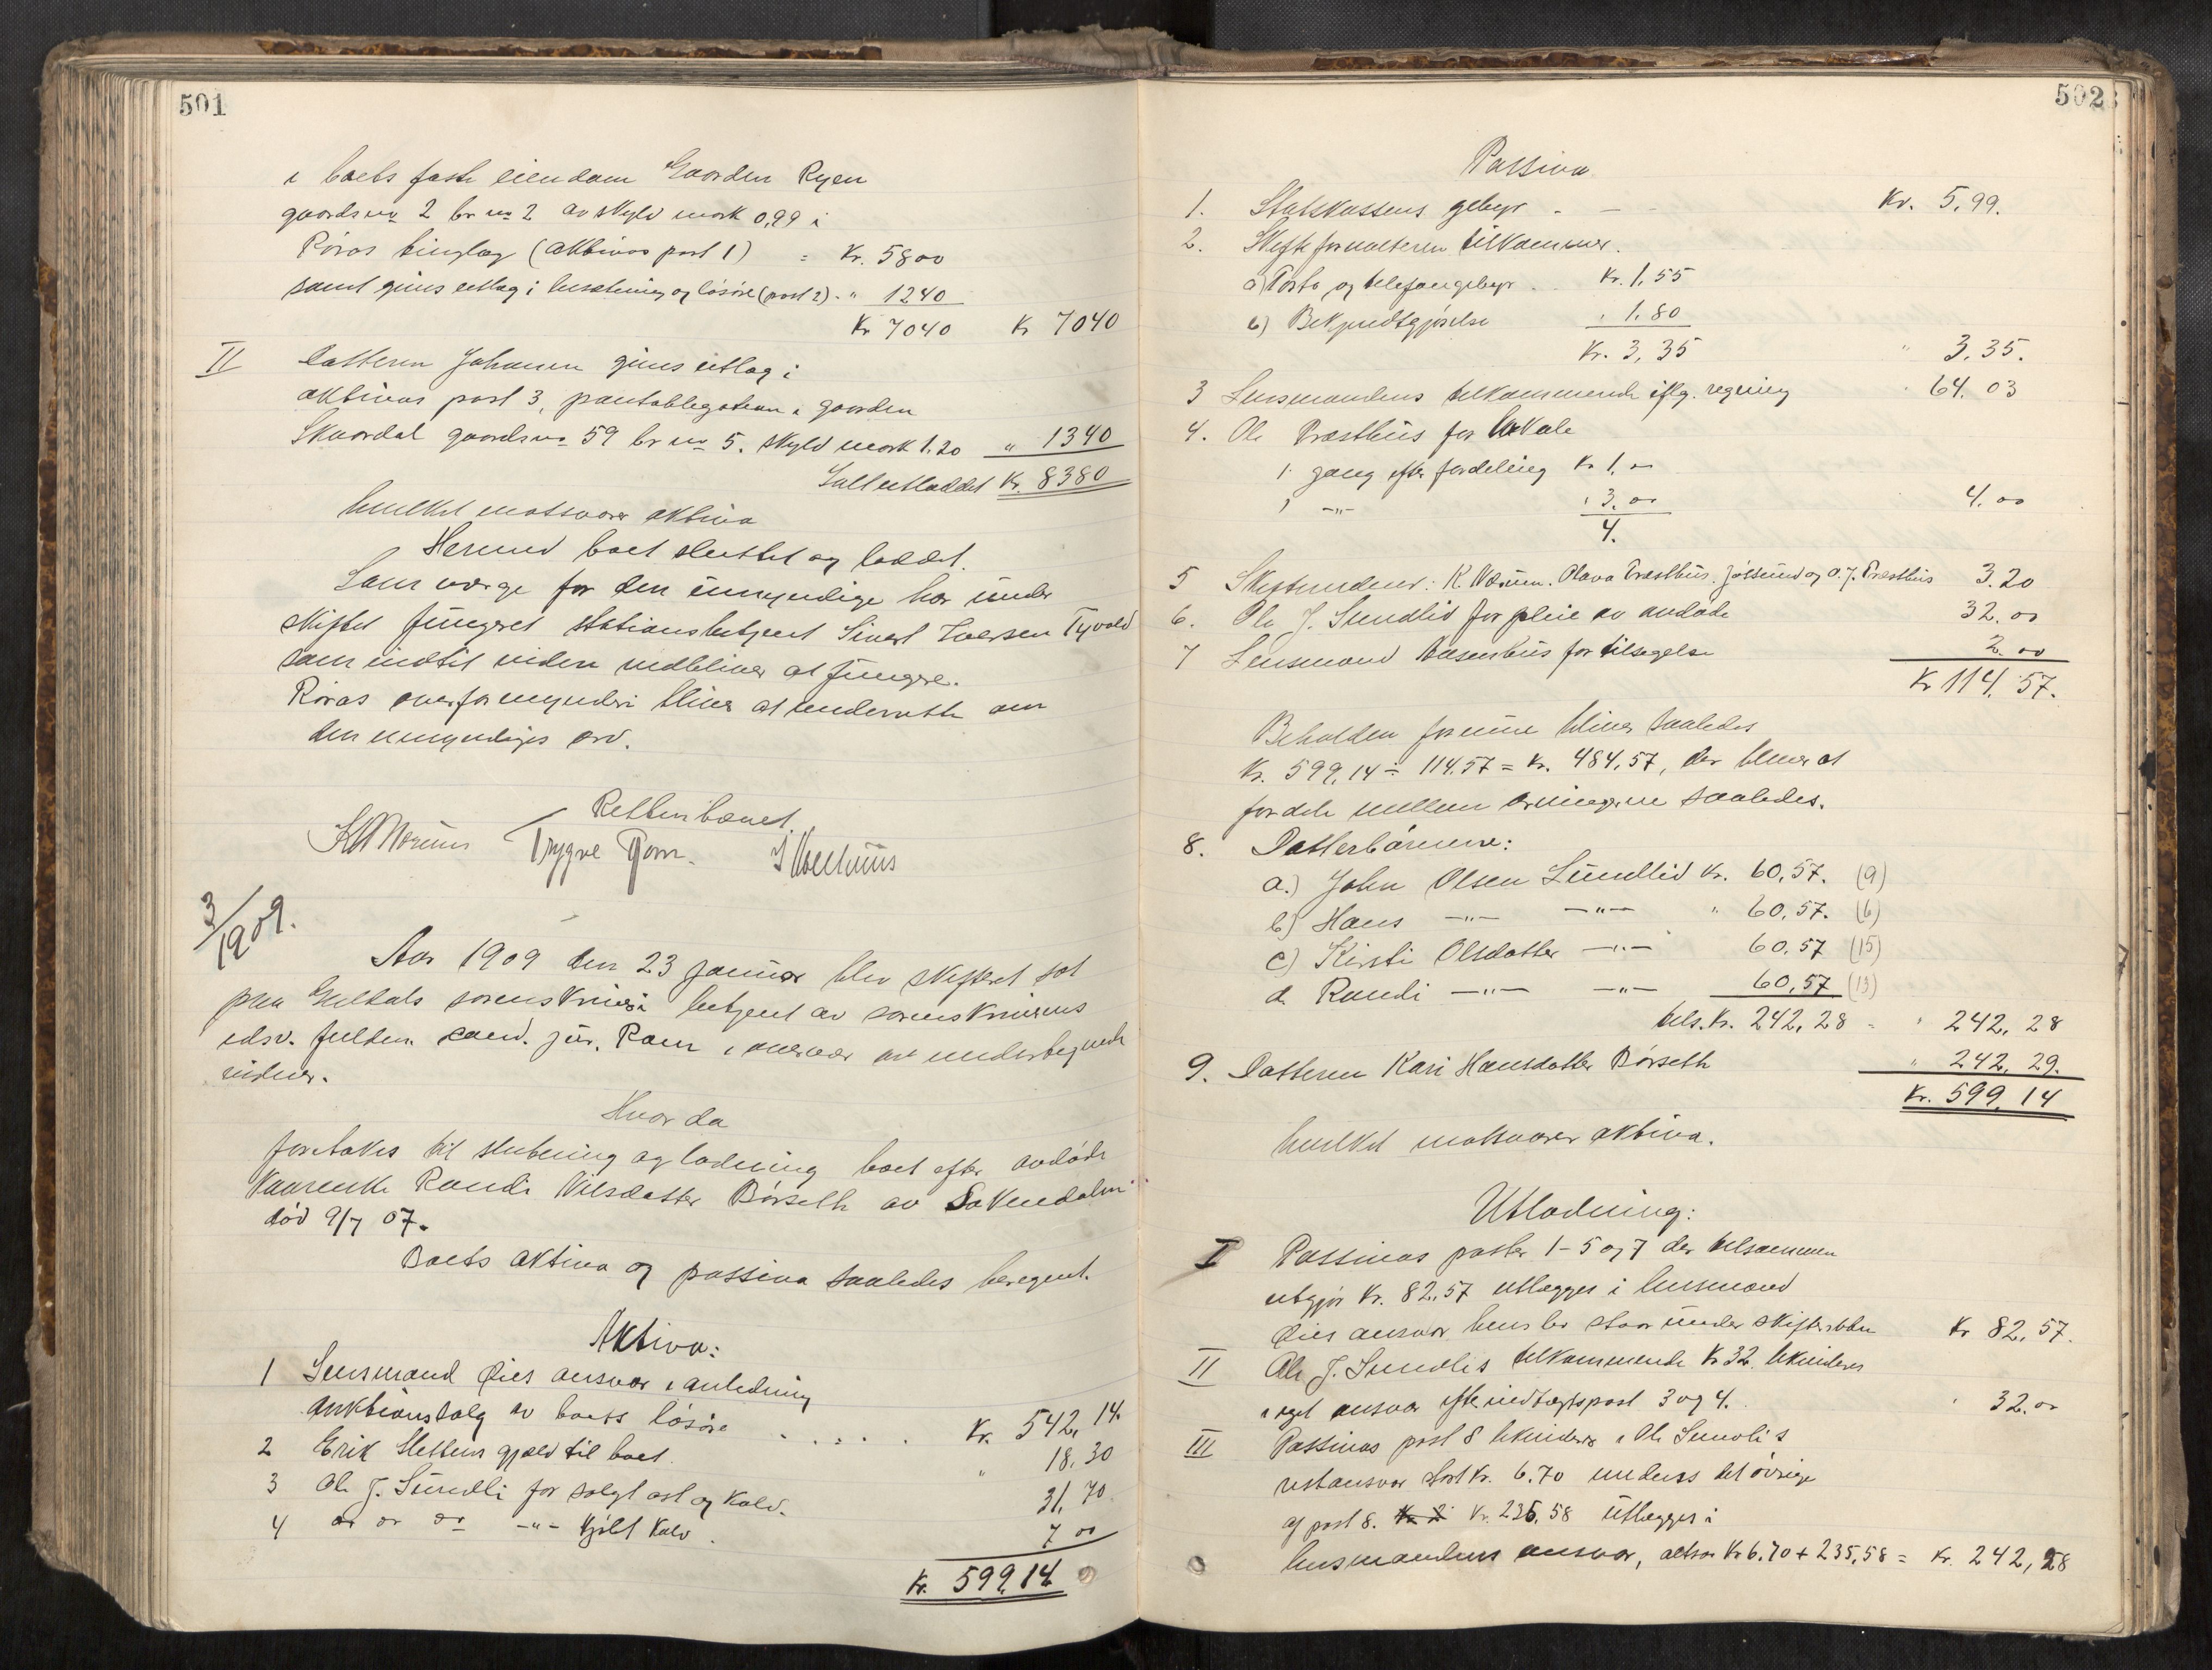 501
i boets faste eiendom Gaarden Ryen
gaardsno 2 br no 2 av skyld mark 0,99 i
Röros tinglag (aktivas post 1) = Kr. 5800
samt gives utlæg i besætning og lösöre (post 2) - " 1240
Kr 7040 Kr 7040
II Datteren Johanna gives utlæg i
aktivas post 3, pantobligation i gaarden
Skaardal gaardsno 59 br no 5. skyld mark 1.20 " 1340
Talt utloddet Kr. 8380
hvilket motsvarer aktiva
Hermed boet sluttet og loddet.
Som værge for den umyndige har under
skiftet fungeret stationsbetjent Sivert Iversen Tyvold
som indtil videre vedbliver at fungere.
Röros overformynderi bliver at underrette om
den umyndiges arv.
Retten hævet.
Trygve Rom.
3/1909.
Aar 1909 den 23 januar blev skifteret sat
paa Guldals sorenskriveri betjent av sorenskriverens
edsv. fuldm. cand. jur. Rom i overvær av undertegnede
vidner.
Hvorda
foretokes til slutning og lodning boet efter avdöde
Kaarenke Randi Nilsdatter Börseth av Soknedalen
död 9/7 07.
Boets aktiva og passiva saaledes beregnet.
Aktiva:
1 Lensmand Öies ansvar i anledning
auktionssalg av boets lösöre . . . . . Kr. 542,14.
2 Erik Slettens gjæld til boet. " 18.30
3 Ole J. Sundli for solgt ost og kalv. 31,70
4 do do do -"- kjölet kalv. 7 00
Kr. 599,14
502
Passiva
1. Statskassens gebyr - — Kr. 5,99.
2. Skifteforvalteren tilkommer.
a) Porto og telefongebyr . . Kr. 1,55
b) Bekjendtgjörelse " 1.80
Kr. 3,35 " 3,35.
3 Lensmandens tilkommende iflg. regning " 64.03
4. Ole Præsthus for lokale
1 gang efter fordeling Kr 1.00
1 -"- " 3.00 4.00
4.
5 Skiftevidner: K. Værum. Olava Præsthus. Jölsund og O. J. Præsthus 3.20
6. Ole J. Sundlid for pleie av avdöde 32.00
7 Lensmand Aasenhus for tilsigelse 2.00
Kr 114,57.
Beholden formue bliver saaledes
Kr. 599,14 ÷ 114.57 = Kr. 484,57, der bliver at
fordele mellem arvingerne saaledes.
8. Datterbörnene:
a.) John Olsen Sundlid Kr. 60,57. (9)
b) Hans -"- -"- " 60,57. (6)
c) Kirsti Olsdatter -"- 60,57 (15)
d. Randi -"- -"- 60,57 (13)
tils. Kr. 242,28 = " 242,28
9. Datteren Kari Hansdatter Börseth " 242,29.
Kr. 599,14
hvilket motsvarer aktiva.
Utlodning:
I Passivas poster 1-5 og 7 der tilsammen
utgjör Kr. 82,57 utlægges i lensmand
Öies ansvar hvis bev staar under skifteretten Kr 82,57.
II Ole J. Sundlis tilkommende Kr 32 likvideres
i eget ansvar efter indtægtspost 3 og 4. " 32.00
III Passivas post 8 likvideres i Ole Sundlis
restansvar stort Kr. 6.70 medens det övrige
af post 8. Kr. 235,58 utlægges i
lensmandens ansvar, altsaa Kr 6,70 + 235,58 = Kr. 242,28